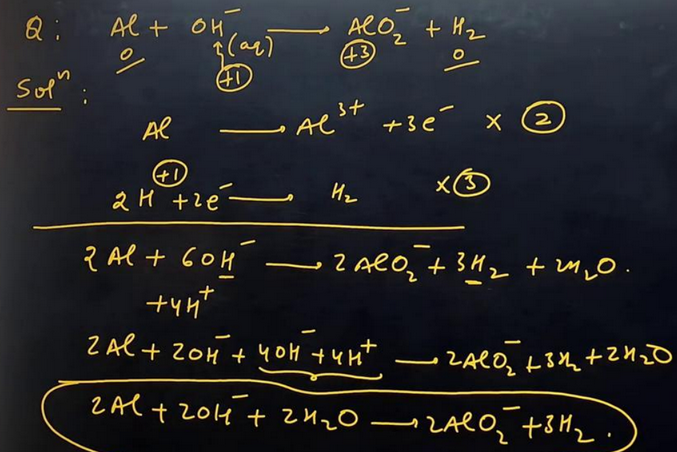 Q: Al + OH⁻(aq) ⟶ AlO₂⁻ + H₂
0 +1 +3 0
Solⁿ:
Al ⟶ Al³⁺ + 3e⁻ × 2
+1
2H + 2e⁻ ⟶ H₂ × 3
2Al + 6OH⁻ ⟶ 2AlO₂⁻ + 3H₂ + 2H₂O.
+4H⁺
2Al + 2OH⁻ + 4OH⁻ + 4H⁺ ⟶ 2AlO₂⁻ + 3H₂ + 2H₂O
2Al + 2OH⁻ + 2H₂O ⟶ 2AlO₂⁻ + 3H₂.